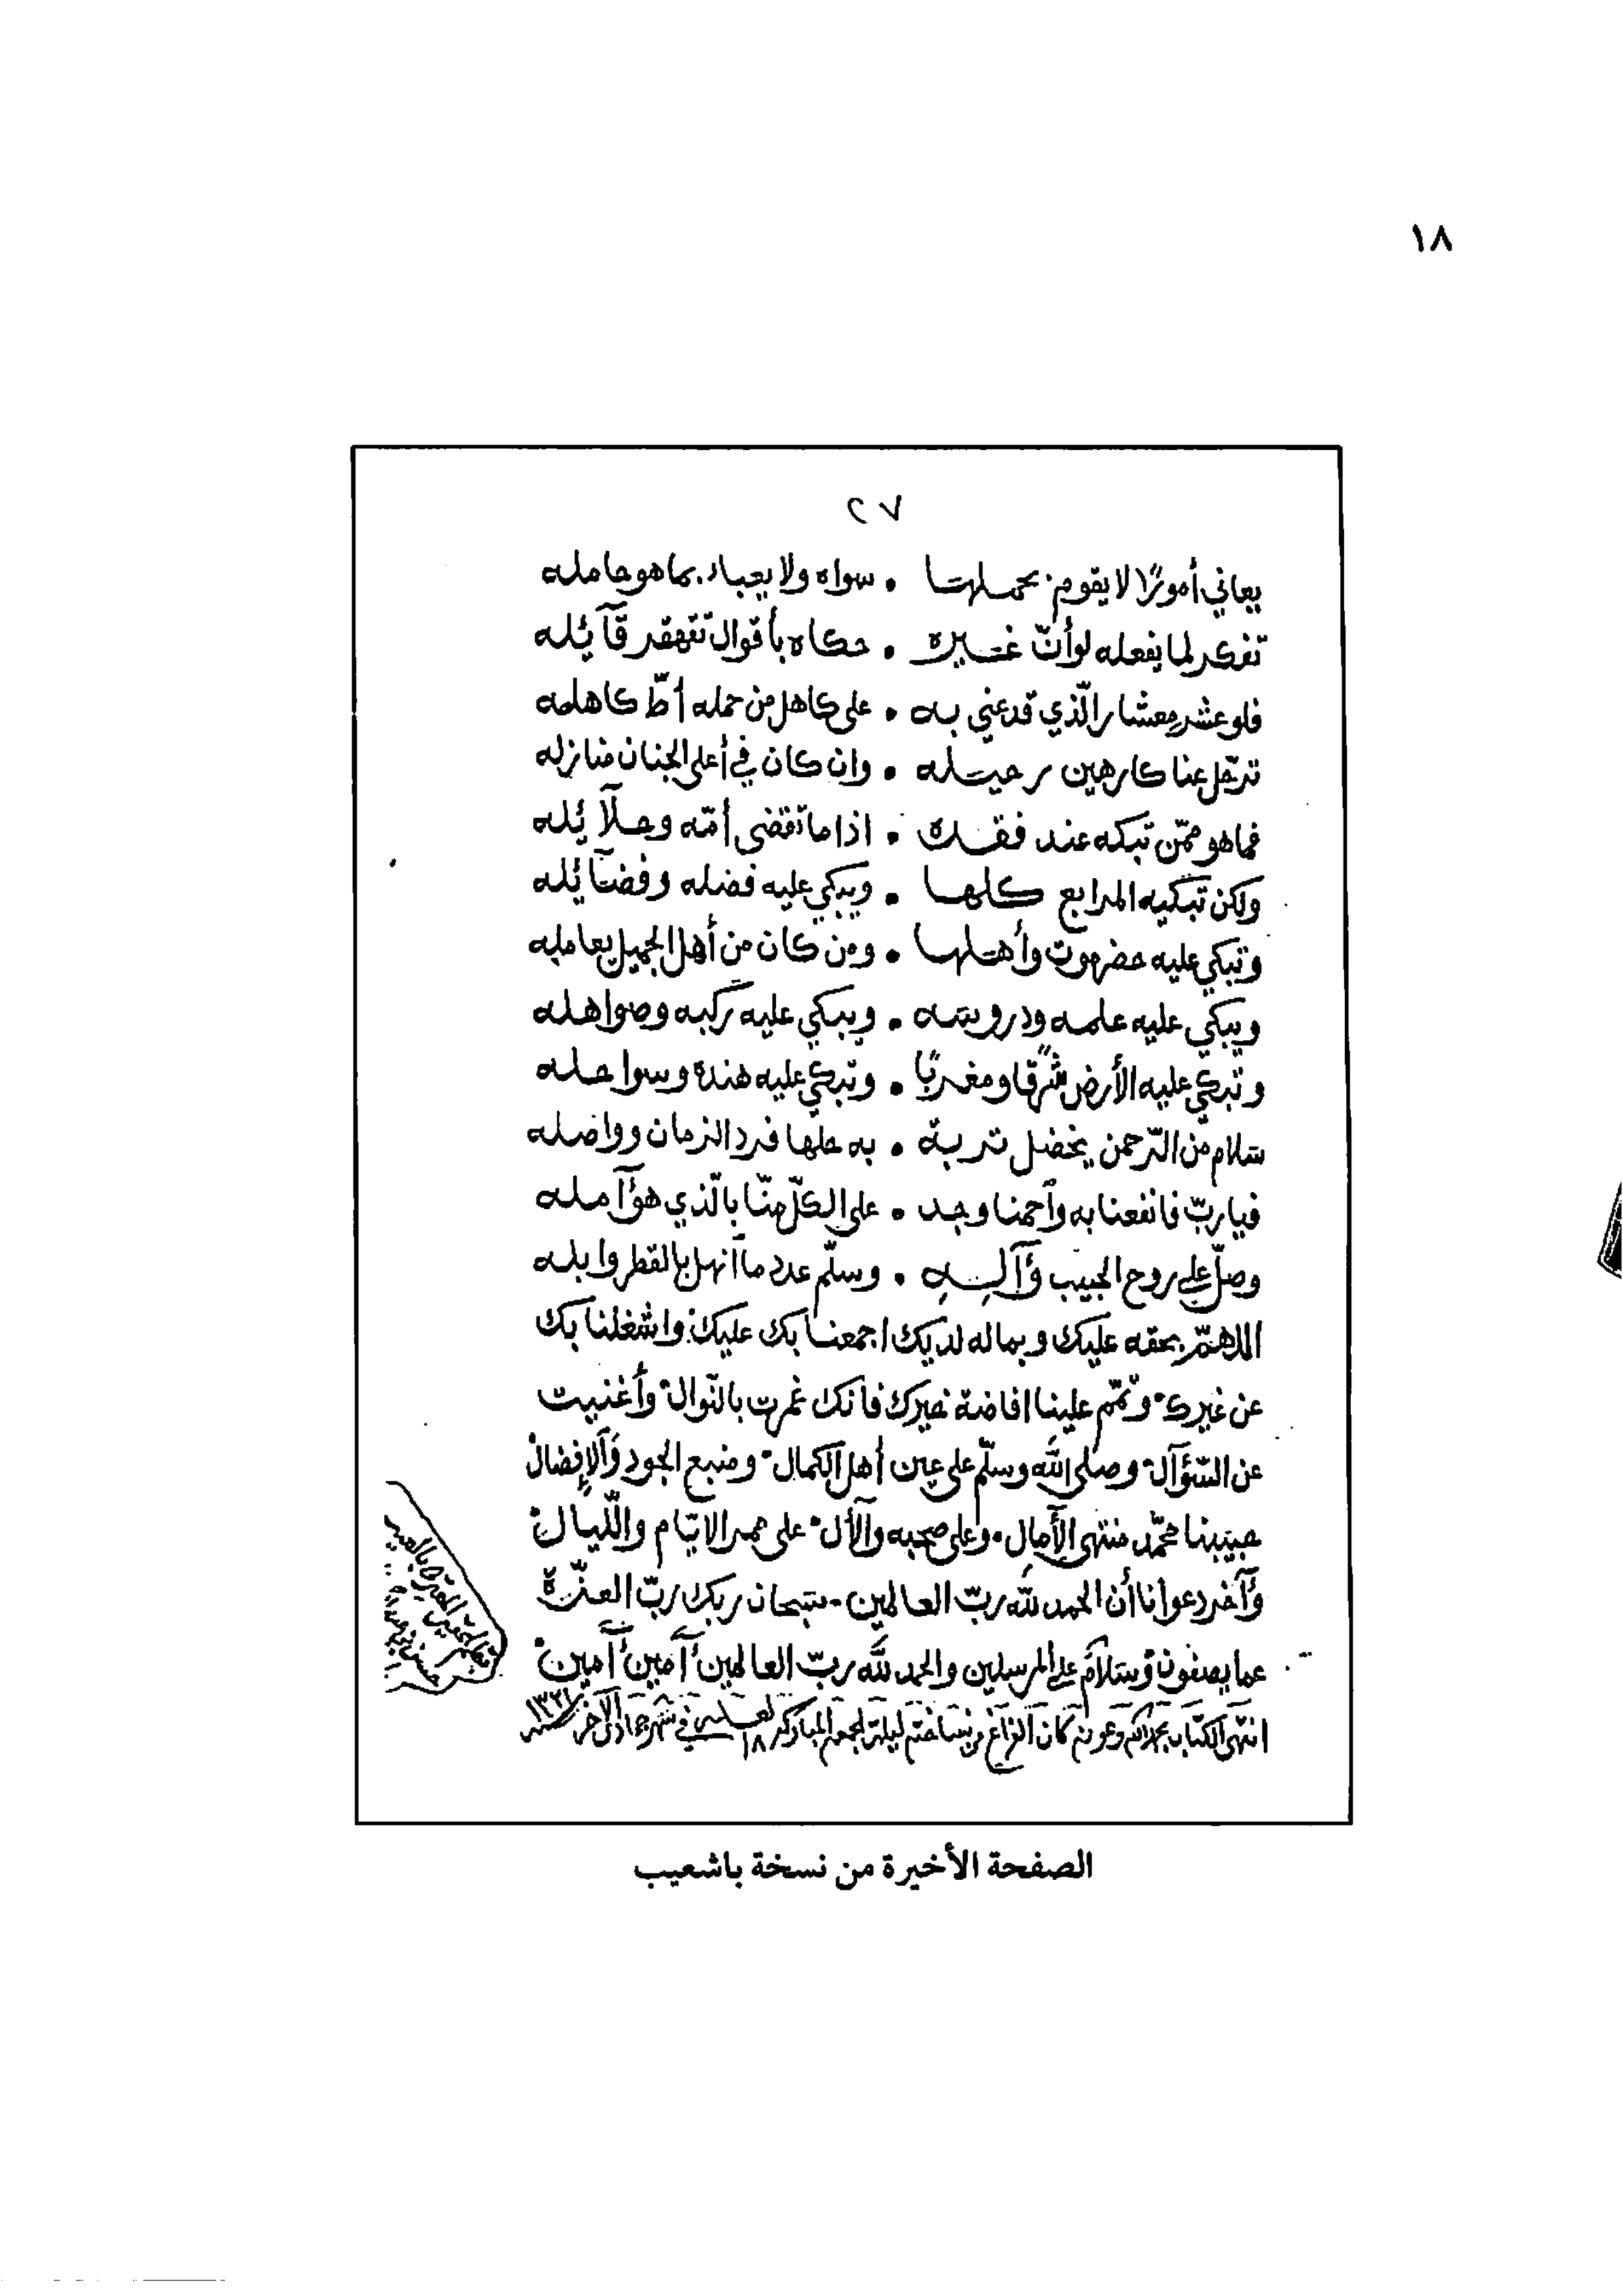 ١٨
٢٧
يعاني أمورًا لا يقوم بحملها • سواه ولا يعباء بما هو حامله
تفكر لما يفعله لو أنّ غيره • حكاه بأقوال تقهقر قآئله
فلو عشر معشار الّذي قد عني به • على كاهل من حمله أطّ كاهله
ترحّل عنا كارهين رحيله • وان كان في أعلى الجنان منازله
فما هو ممّن تبكه عند فقده • اذا ما تقضى أمّه وحلآئله
ولكن تبكيه المرابع كلها • ويبكي عليه فضله وفضآئله
وتبكي عليه حضرموت وأهلها • ومن كان من أهل الجميل يعامله
ويبكي عليه علمه ودروسه • ويبكي عليه ركبه وصواهله
وتبكي عليه الأرض شرقًا ومغربًا • وتبكي عليه هنده وسواحله
سلام من الرّحمن يخضل تربة • به حلها فرد الزمان وواصله
فيا ربّ فانفعنا به وأحمنا وجد • على الكلّ منّا بالّذي هو آمله
وصلّ على روح الحبيب وآله • وسلّم عدد ما أنهل بالقطر وابله
اللهمّ بحقه عليك وبما له لديك اجمعنا بك عليك واشغلنا بك
عن غيرك وتمّم علينا افاضة خيرك فانك غمرت بالنّوال وأغنيت
عن السّؤآل وصلى الله وسلّم على عين أهل الكمال ومنبع الجود والإفضال
حبيبنا محمّد منتهى الأمال وعلى صحبه والأل على ممر الايّام واللّيال
وآخر دعوانا أن الحمد لله ربّ العالمين سبحان ربك ربّ العزّة
عما يصفون وسلام على المرسلين والحمد لله ربّ العالمين آمين آمين
انتهى الكتاب بحمد الله وعونه كان الفراغ من نساخته ليلة الجمعة المباركة ١٨ في شهر جمادى الآخر سنة
الصفحة الأخيرة من نسخة باشعيب